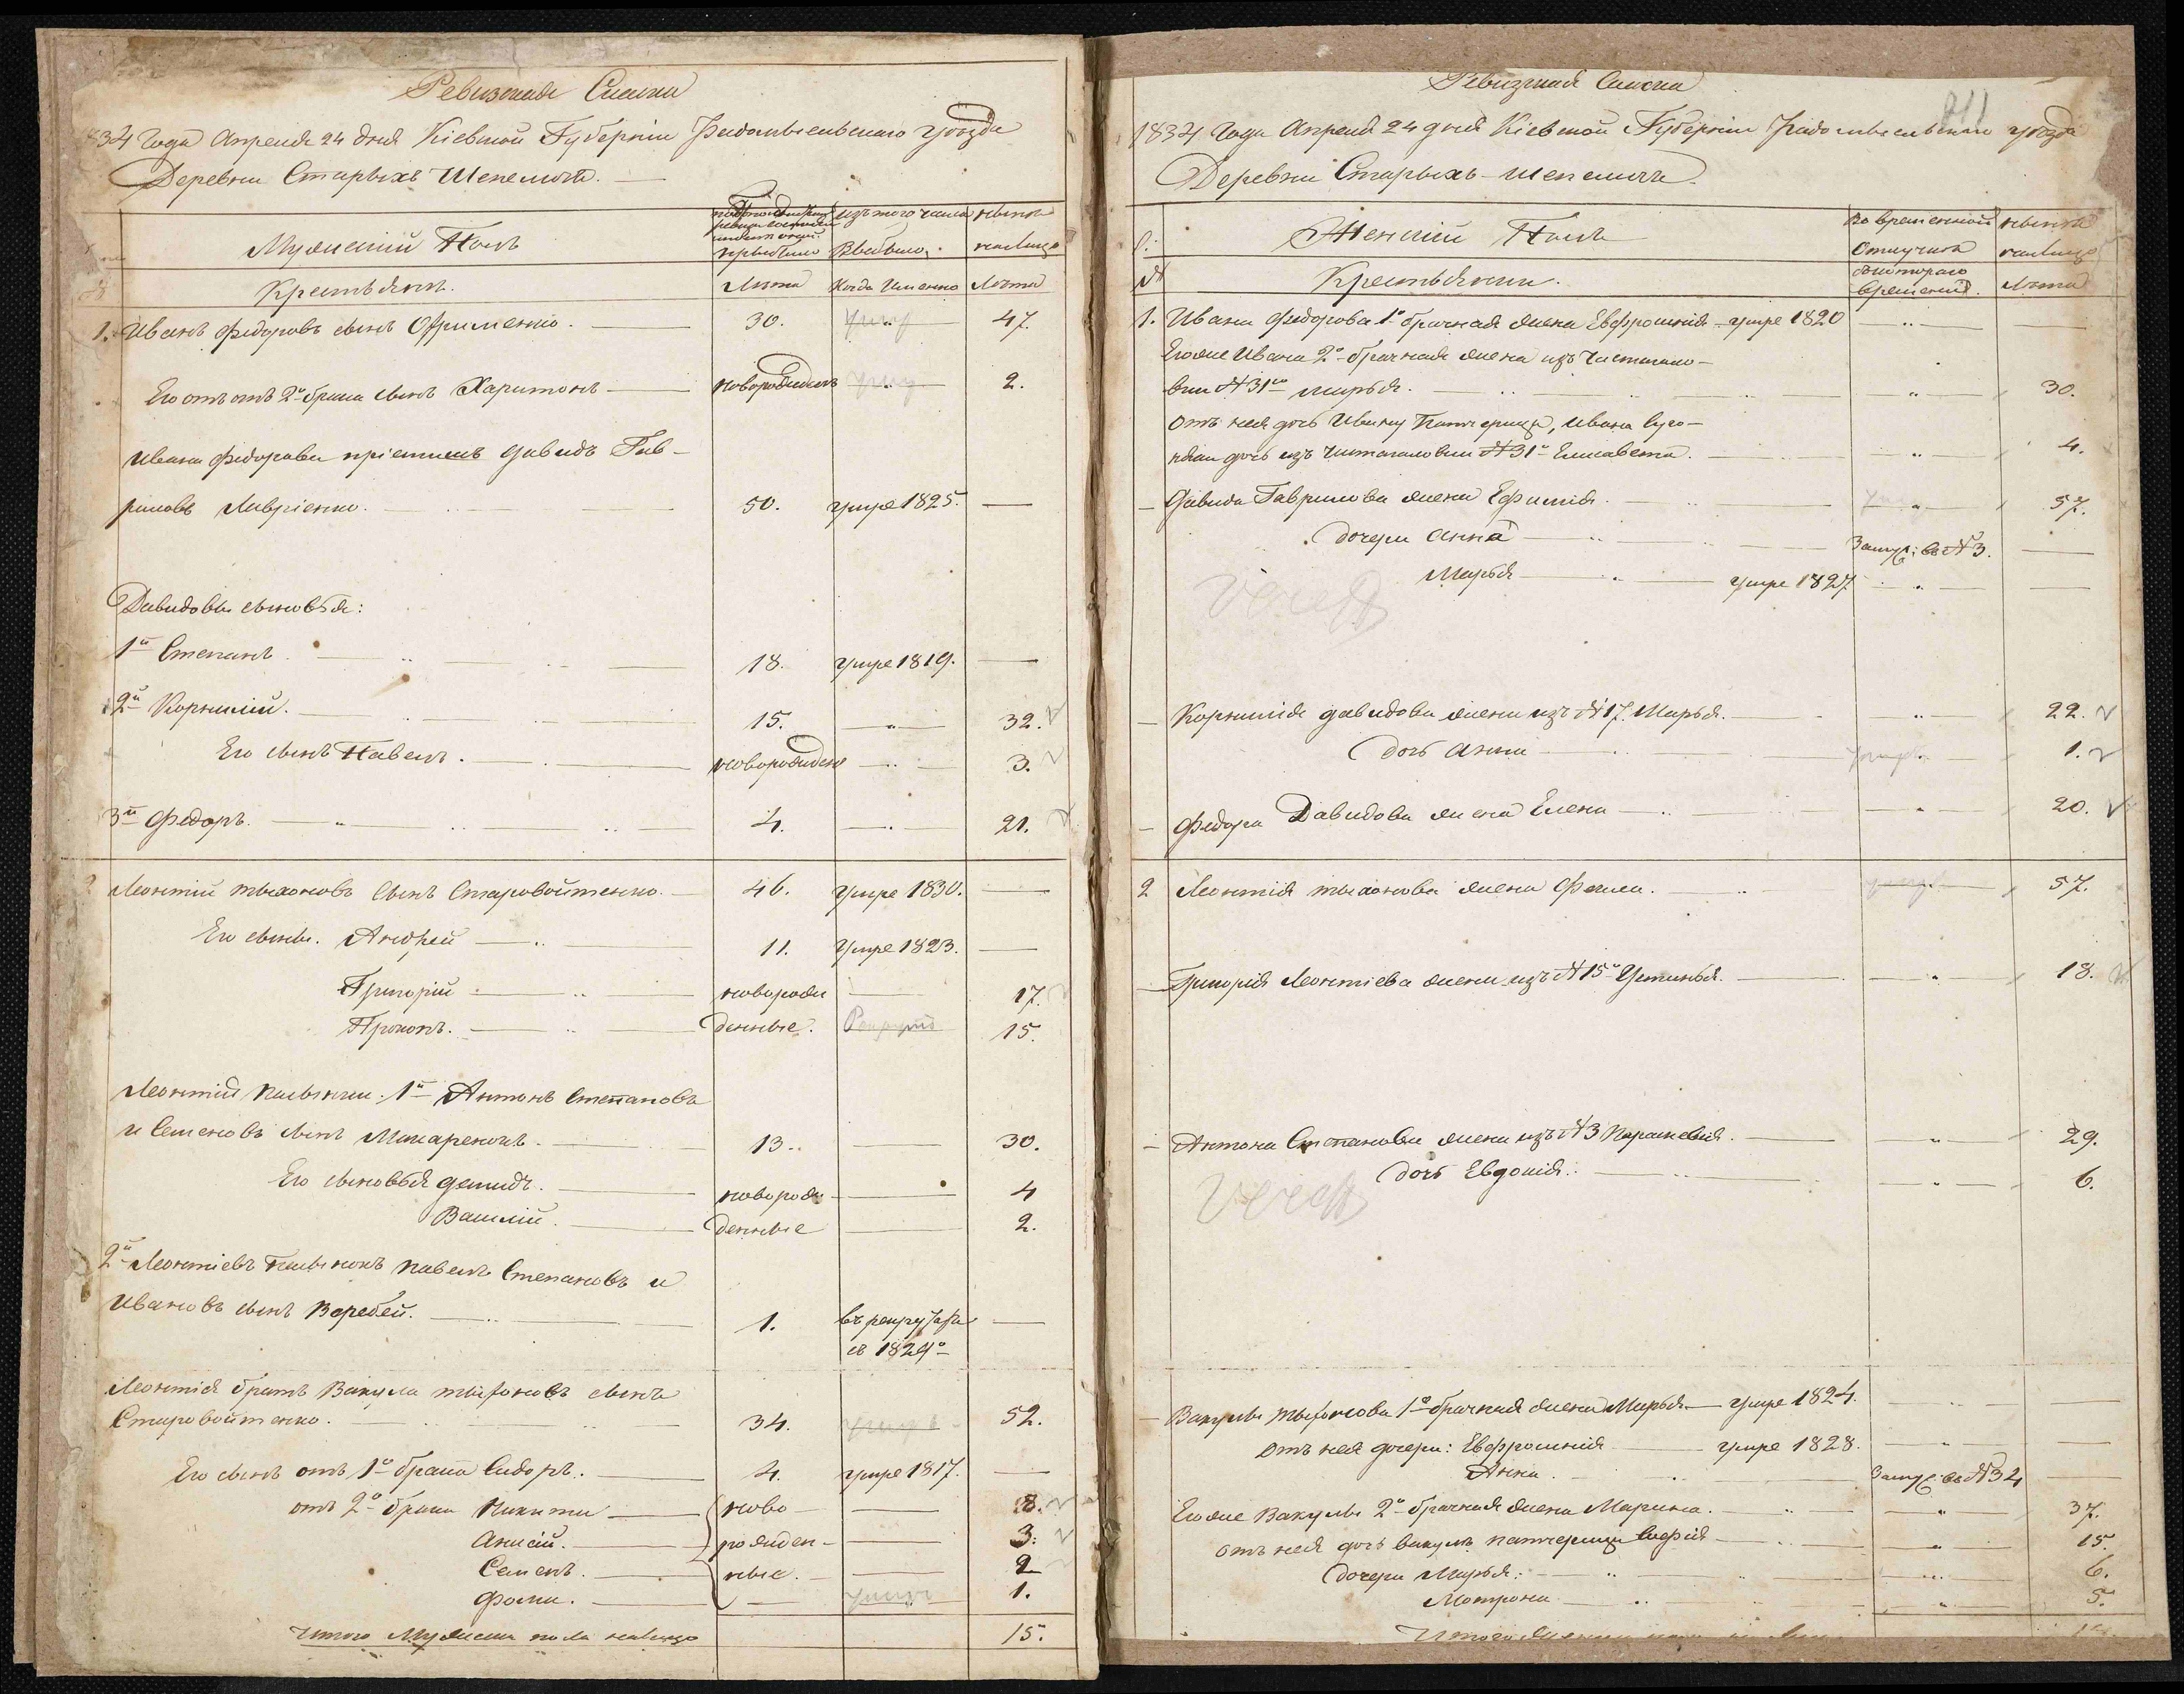 Ревизская Сказка
1834 Года Апреля 24 дня Кіевской Губерніи Радомысльскаго уѣзда
Деревни Старыхъ Шепеличъ.
Мужескій Полъ
по последней ревизіи состояло и после оной прибыло
изъ того числа Выбыло.
нынѣ налицо
Крестьяне.
Лѣта
Когда Именно
Лѣта
1. Иванъ Федоровъ сынъ 30. 47.
Его отъ 2го брака сынъ Харитонъ новорожденъ 2.
Ивана Федорова пріемышъ Давидъ Гав-
риловъ Лавріенко. 50. умре 1825.
Давидовы сыновья:
1й Степанъ 18. умре 1819.
2й Корнилій. 15. 32.
Его сынъ Павелъ. новорожденъ 3.
3й Федоръ. 4. 21.
2 Леонтій Тыхоновъ сынъ Старовойтенко. 46. умре 1830.
Его сыны. Андрей 11. умре 1823.
Григорій новорож 17.
Прокопъ. денные. Рекрутъ 15.
Леонтія пасынки. 1й Антонъ Степановъ
и Семеновъ сынъ Макаренокъ. 13. 30.
Его сыновья Демидъ. новорож 4
Василій. денные 2.
2й Леонтіевъ пасынокъ Павелъ Степановъ и
Ивановъ сынъ Воребей. 1. въ рекрутахъ
съ 1824о
Леонтія братъ Вакула Тыхоновъ сынъ
Старовойтенко. 34. умре 52.
Его сынъ отъ 1о брака Сидоръ. 4. умре 1817.
отъ 2о брака Никита ново 8.
Анисій. рожден- 3.
Семенъ. ные. 2
Фома. умре 1.
Итого Мужеска пола налицо 15.
Ревизская Сказка
211
1834 Года Апреля 24 дня Кіевской Губерніи Радомысльскаго уѣзда
Деревни Старыхъ-Шепеличъ.
Женскій Полъ
Во временной Отлучкѣ
нынѣ налицо
№
Крестьянки.
Съ котораго времени.
Лѣта
1. Ивана Федорова 1о брачная жена Евфросинія умре 1820
Его же Ивана 2о брачная жена изъ Чистогало-
вки №31го Марья. 30.
Отъ нея дочь Ивану Патчерица, Ивана
дочь изъ Чистогаловки №31о Елисавета. 4.
Давида Гаврилова жена Ефимія. 57.
дочери Анна Замуж: въ №3.
Марья умре 1827.
Корнилія Давидова жена изъ №17. Марья. 22.
дочь Анна умре 1.
Федора Давидова жена Елена 20.
2 Леонтія Тыхонова жена 57.
Григорія Леонтіева жена изъ №15о Устинья. 18.
Антона Степанова жена изъ №3 Параскевія. 29.
дочь Евдокія. 6.
Вакулы Тыхонова 1о брачная жена Марья умре 1824.
Отъ нея дочери: Евфросинія умре 1828.
Анна. Замуж: въ №34
Его же Вакулы 2о брачная жена Марина. 37.
отъ нея дочь Вакулѣ патчерица Софія 15.
дочери Марья. 6.
Мотрона 5.
Итого женска